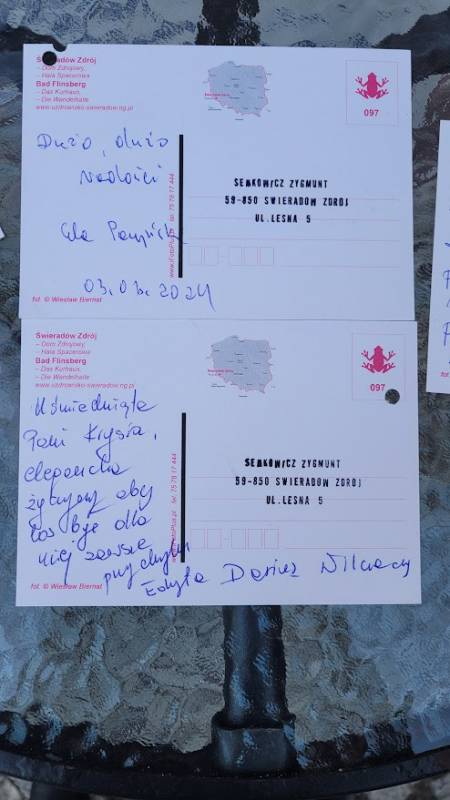 Świeradów Zdrój
– Dom Zdrojowy,
– Hala Spacerowa
Bad Flinsberg
– Das Kurhaus,
– Die Wandelhalle
www.uzdrowisko-swieradow.ng.pl
097
Dużo, dużo
radości
Ela
03.06.2024
SENKOWICZ ZYGMUNT
59-850 SWIERADOW ZDROJ
UL.LESNA 5
www.iFotoPlus.pl tel. 75 78 17 444
fot. © Wiesław Biernat
Świeradów Zdrój
– Dom Zdrojowy,
– Hala Spacerowa
Bad Flinsberg
– Das Kurhaus,
– Die Wandelhalle
www.uzdrowisko-swieradow.ng.pl
097
Uśmiechnięta
Pani Krysia,
elegancka
życzymy aby
los był dla
niej zawsze
przychylny
Edyta Dariusz
SENKOWICZ ZYGMUNT
59-850 SWIERADOW ZDROJ
UL.LESNA 5
www.iFotoPlus.pl tel. 75 78 17 444
fot. © Wiesław Biernat
fot